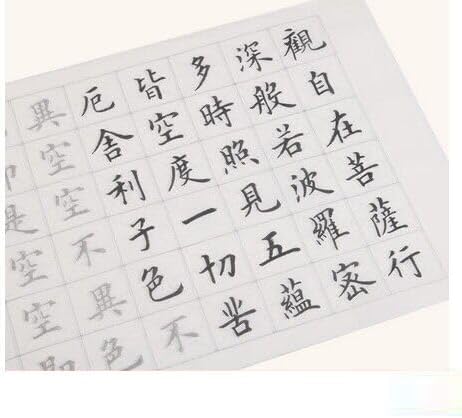 觀自在菩薩行
深般若波羅密
多時照見五蘊
皆空度一切苦
厄舍利子色不
異空空不異色
即是空空即